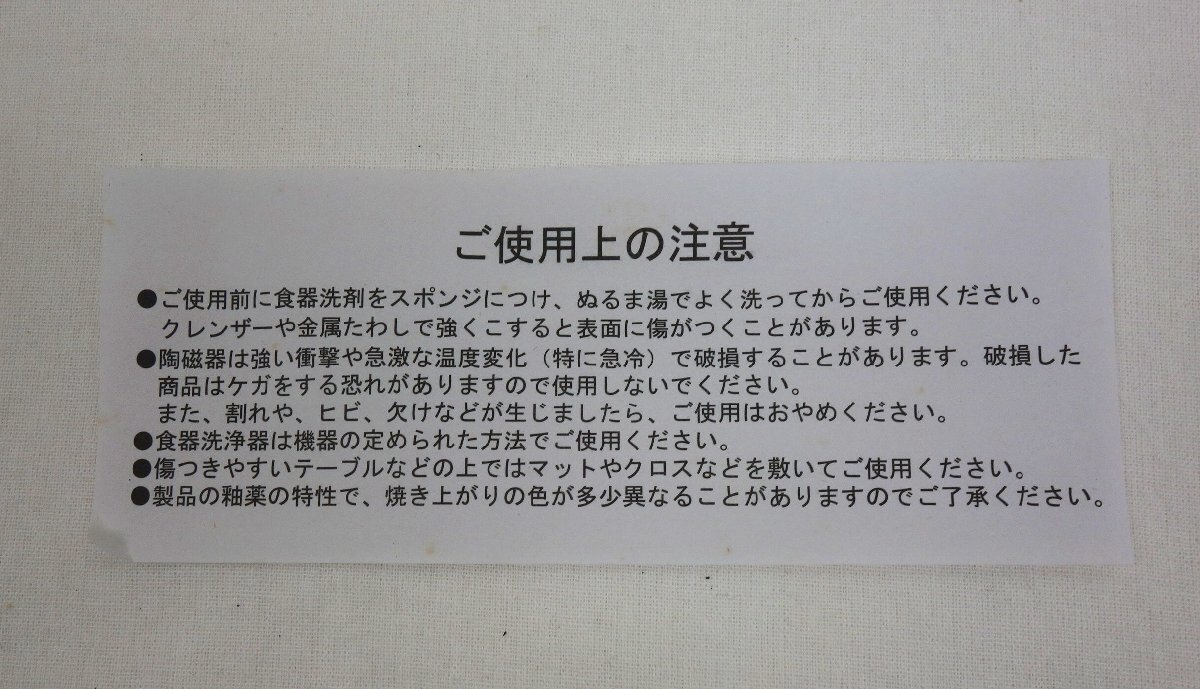 ご使用上の注意
●ご使用前に食器洗剤をスポンジにつけ、ぬるま湯でよく洗ってからご使用ください。
クレンザーや金属たわしで強くこすると表面に傷がつくことがあります。
●陶磁器は強い衝撃や急激な温度変化（特に急冷）で破損することがあります。破損した
商品はケガをする恐れがありますので使用しないでください。
また、割れや、ヒビ、欠けなどが生じましたら、ご使用はおやめください。
●食器洗浄器は機器の定められた方法でご使用ください。
●傷つきやすいテーブルなどの上ではマットやクロスなどを敷いてご使用ください。
●製品の釉薬の特性で、焼き上がりの色が多少異なることがありますのでご了承ください。